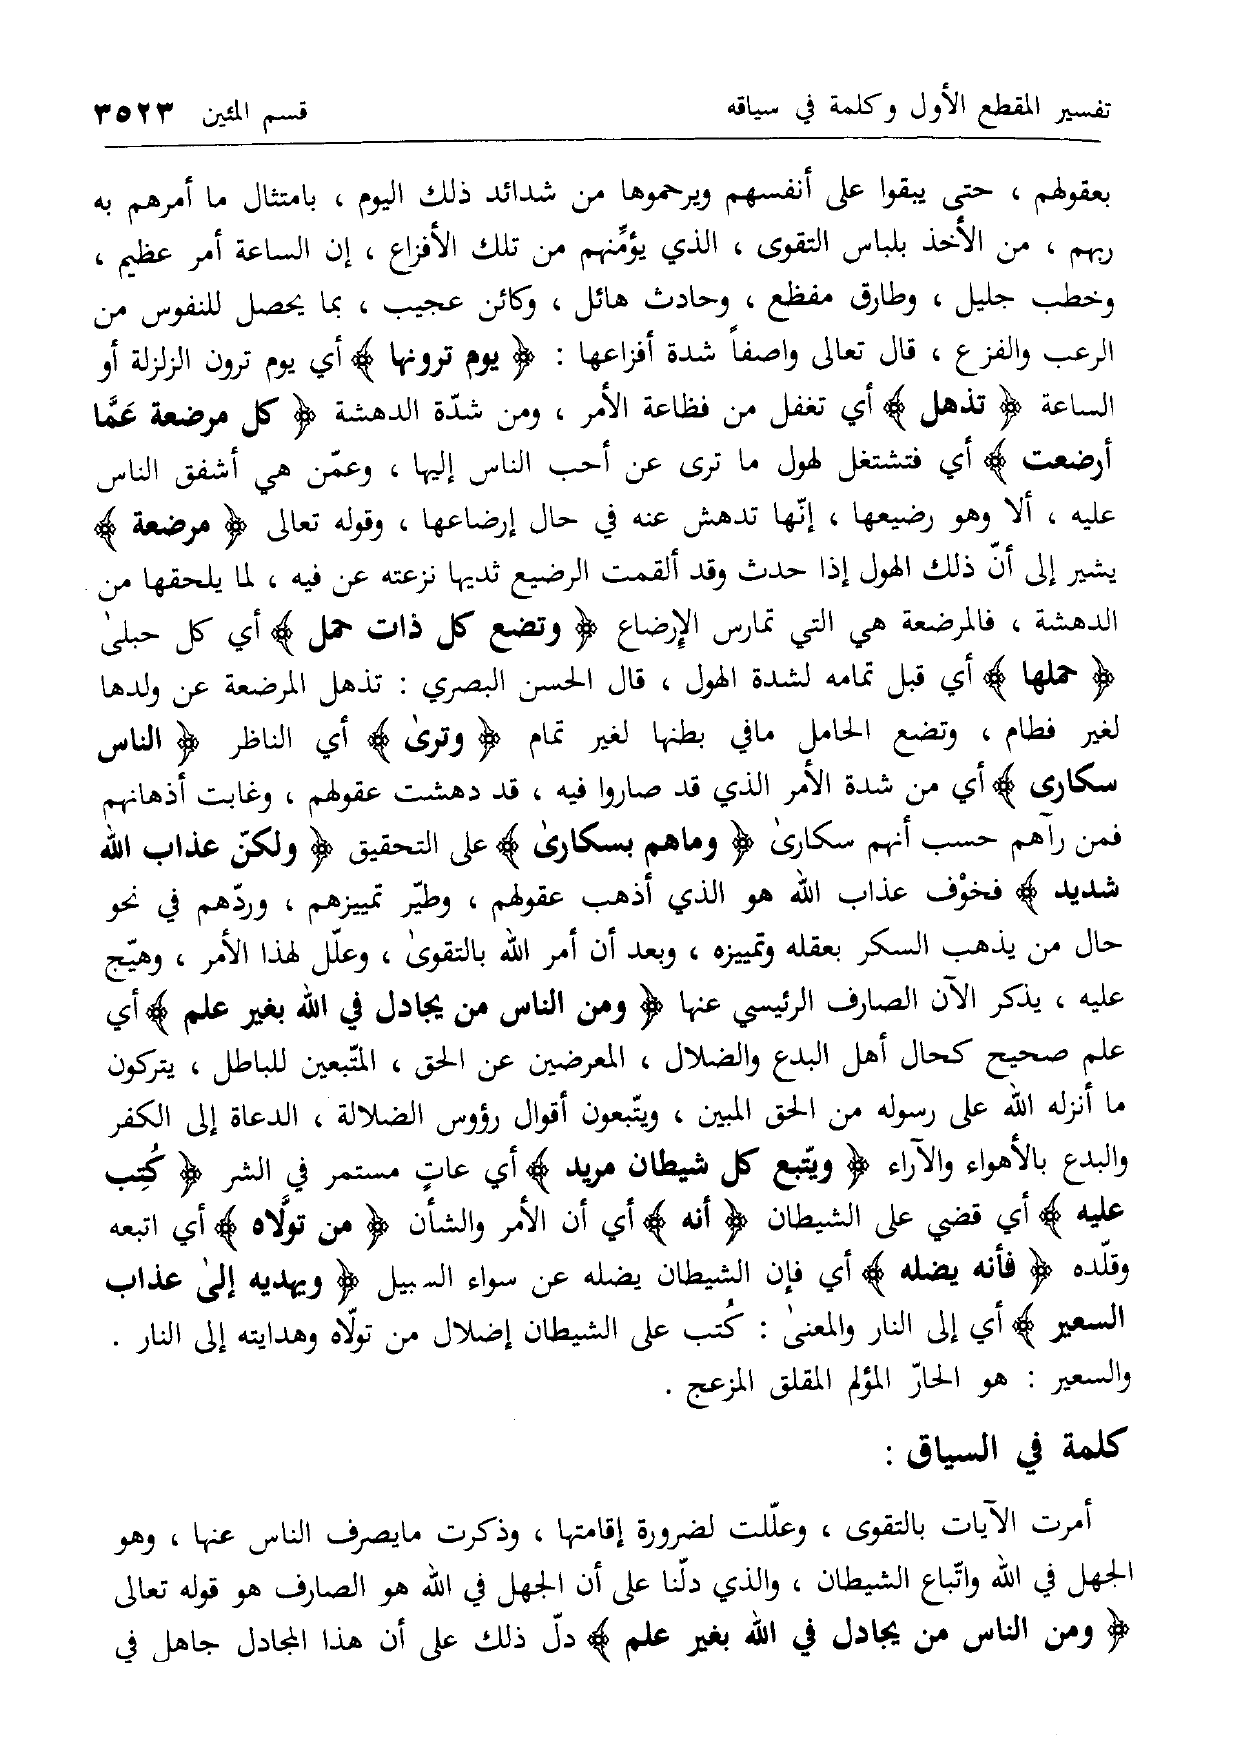 تفسير المقطع الأول وكلمة في سياقه
قسم المئين ٣٥٢٣
بعقولهم ، حتى يبقوا على أنفسهم ويرحموها من شدائد ذلك اليوم ، بامتثال ما أمرهم به
ربهم ، من الأخذ بلباس التقوى ، الذي يؤمِّنهم من تلك الأفزاع ، إن الساعة أمر عظيم ،
وخطب جليل ، وطارق مفظع ، وحادث هائل ، وكائن عجيب ، بما يحصل للنفوس من
الرعب والفزع ، قال تعالى واصفاً شدة أفزاعها : ﴿ يوم ترونها ﴾ أي يوم ترون الزلزلة أو
الساعة ﴿ تذهل ﴾ أي تغفل من فظاعة الأمر ، ومن شدّة الدهشة ﴿ كل مرضعة عَمَّا
أرضعت ﴾ أي فتشتغل لهول ما ترى عن أحب الناس إليها ، وعمّن هي أشفق الناس
عليه ، ألا وهو رضيعها ، إنّها تدهش عنه في حال إرضاعها ، وقوله تعالى ﴿ مرضعة ﴾
يشير إلى أنّ ذلك الهول إذا حدث وقد ألقمت الرضيع ثديها نزعته عن فيه ، لما يلحقها من
الدهشة ، فالمرضعة هي التي تمارس الإرضاع ﴿ وتضع كل ذات حمل ﴾ أي كل حبلىٰ
﴿ حملها ﴾ أي قبل تمامه لشدة الهول ، قال الحسن البصري : تذهل المرضعة عن ولدها
لغير فطام ، وتضع الحامل مافي بطنها لغير تمام ﴿ وترىٰ ﴾ أي الناظر ﴿ الناس
سكارى ﴾ أي من شدة الأمر الذي قد صاروا فيه ، قد دهشت عقولهم ، وغابت أذهانهم
فمن رآهم حسب أنهم سكارىٰ ﴿ وماهم بسكارىٰ ﴾ على التحقيق ﴿ ولكنّ عذاب الله
شديد ﴾ فخوْف عذاب الله هو الذي أذهب عقولهم ، وطيّر تمييزهم ، وردّهم في نحو
حال من يذهب السكر بعقله وتمييزه ، وبعد أن أمر الله بالتقوىٰ ، وعلّل لهذا الأمر ، وهيّج
عليه ، يذكر الآن الصارف الرئيسي عنها ﴿ ومن الناس من يجادل في الله بغير علم ﴾ أي
علم صحيح كحال أهل البدع والضلال ، المعرضين عن الحق ، المتّبعين للباطل ، يتركون
ما أنزله الله على رسوله من الحق المبين ، ويتّبعون أقوال رؤوس الضلالة ، الدعاة إلى الكفر
والبدع بالأهواء والآراء ﴿ ويتّبع كل شيطان مريد ﴾ أي عاتٍ مستمر في الشر ﴿ كُتِب
عليه ﴾ أي قضي على الشيطان ﴿ أنه ﴾ أي أن الأمر والشأن ﴿ من تولَّاه ﴾ أي اتبعه
وقلّده ﴿ فأنه يضله ﴾ أي فإن الشيطان يضله عن سواء السبيل ﴿ ويهديه إلىٰ عذاب
السعير ﴾ أي إلى النار والمعنىٰ : كُتب على الشيطان إضلال من تولّاه وهدايته إلى النار .
والسعير : هو الحارّ المؤلم المقلق المزعج .
كلمة في السياق :
أمرت الآيات بالتقوى ، وعلّلت لضرورة إقامتها ، وذكرت مايصرف الناس عنها ، وهو
الجهل في الله واتّباع الشيطان ، والذي دلّنا على أن الجهل في الله هو الصارف هو قوله تعالى
﴿ ومن الناس من يجادل في الله بغير علم ﴾ دلّ ذلك على أن هذا المجادل جاهل في